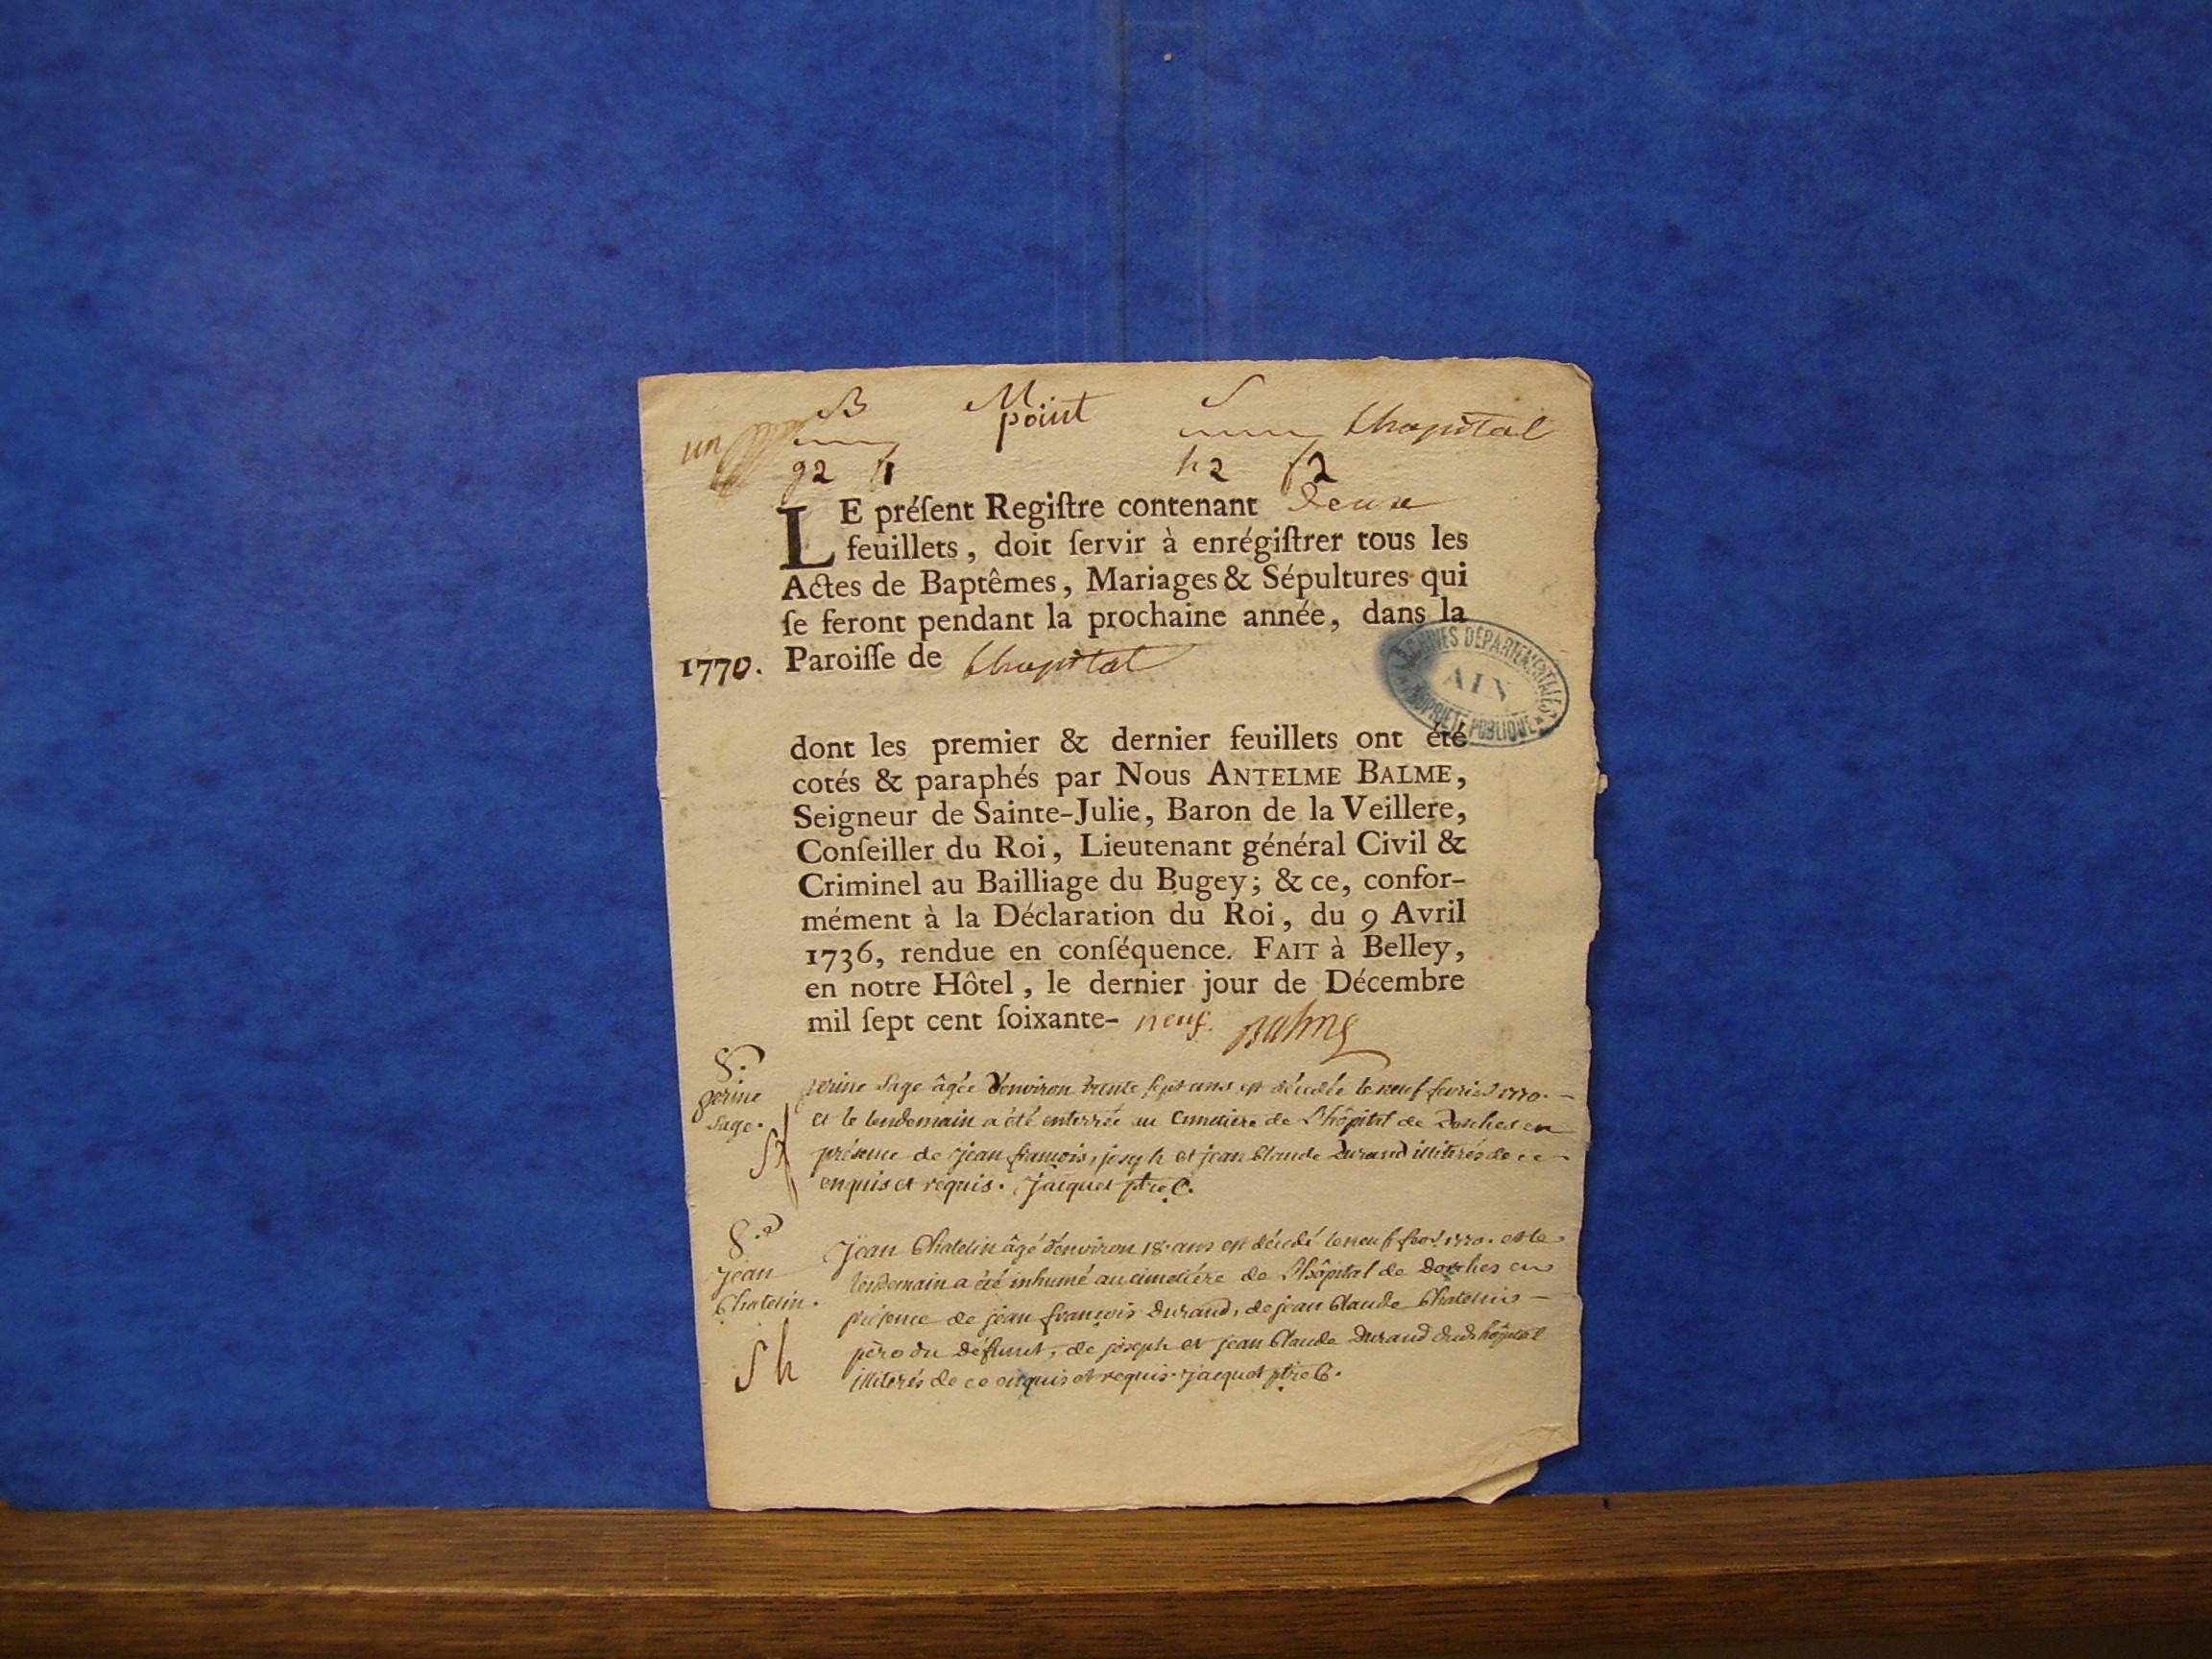 B M S
un point Lhopital
g2 f1 h2 f2
LE préſent Regiſtre contenant Deux
feuillets, doit ſervir à enrégiſtrer tous les
Actes de Baptêmes, Mariages & Sépultures qui
ſe feront pendant la prochaine année, dans la
1770. Paroiſſe de Lhopital
ARCHIVES DÉPARTEMENTALES
AIN
PROPRIÉTÉ PUBLIQUE
dont les premier & dernier feuillets ont été
cotés & paraphés par Nous ANTELME BALME,
Seigneur de Sainte-Julie, Baron de la Veillere,
Conſeiller du Roi, Lieutenant général Civil &
Criminel au Bailliage du Bugey; & ce, confor-
mément à la Déclaration du Roi, du 9 Avril
1736, rendue en conſéquence. FAIT à Belley,
en notre Hôtel, le dernier jour de Décembre
mil ſept cent ſoixante- neuf. Balme
S.
perine
Sage.
perine Sage âgée d'environ trente sept ans est décédée le neuf fevrier 1770.
et le lendemain a été enterrée au Cimetiere de L'hôpital de Dorches en
présence de jean françois, joseph et jean Claude Durand illiterés de ce
enquis et requis. Jacquet ptre C.
S.re
jean
Chatelin.
Jean Chatelin âgé d'environ 18. ans est décédé le neuf fevr. 1770. et le
lendemain a été inhumé au cimetiére de L'hôpital de Dorches en
présence de jean françois Durand, de jean Claude Chatelin
père du défunt, de joseph et jean Claude Durand dud. hôpital
illiterés de ce enquis et requis. jacquet ptre C.